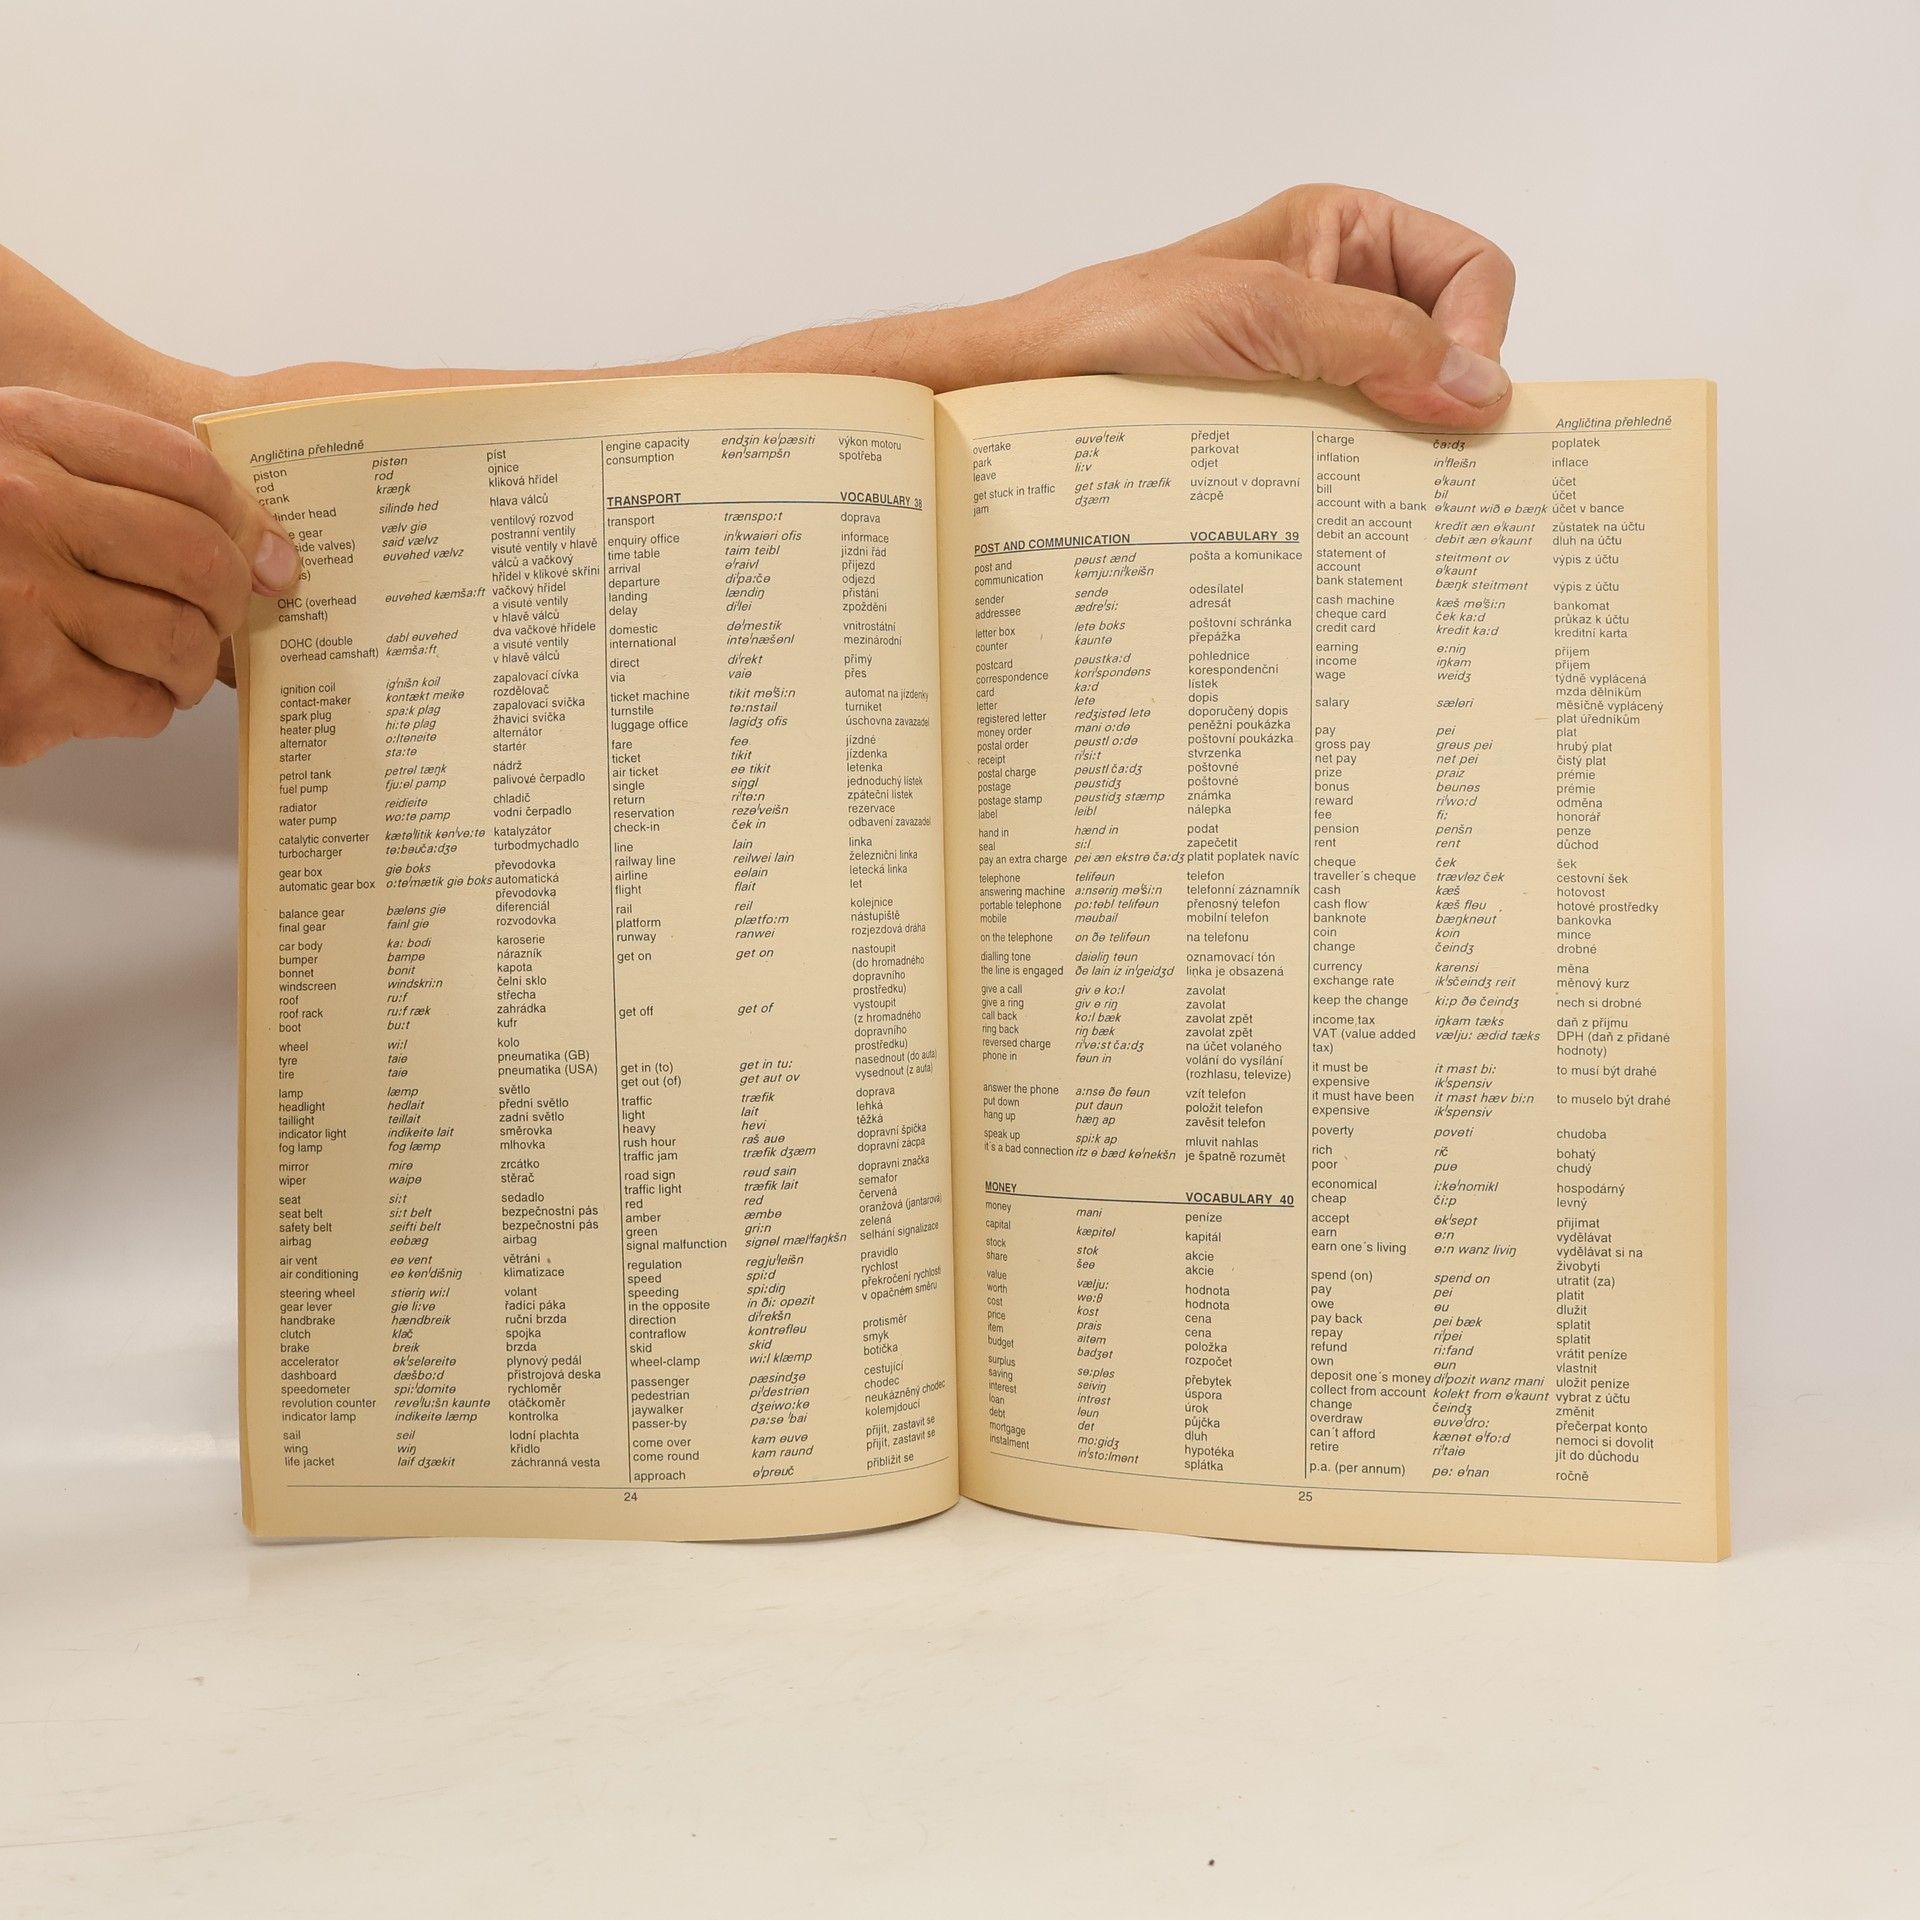 Angličtina přehledně
piston pisten píst
rod rod ojnice
crank kræŋk kliková hřídel
inder head silində hed hlava válců
e gear vælv giə ventilový rozvod
side valves) said vælvz postranní ventily
(overhead əuvəhed vælvz visuté ventily v hlavě
s) válců a vačkový
hřídel v klikové skříni
OHC (overhead əuvəhed kæmša:ft vačkový hřídel
camshaft) a visuté ventily
v hlavě válců
DOHC (double dabl əuvəhed dva vačkové hřídele
overhead camshaft) kæmša:ft a visuté ventily
v hlavě válců
ignition coil igˈnišn koil zapalovací cívka
contact-maker kontækt meikə rozdělovač
spark plug spa:k plag zapalovací svíčka
heater plug hi:tə plag žhavicí svíčka
alternator o:ltəneitə alternátor
starter sta:tə startér
petrol tank petrəl tæŋk nádrž
fuel pump fju:əl pamp palivové čerpadlo
radiator reidieitə chladič
water pump wo:tə pamp vodní čerpadlo
catalytic converter kætəˈlitik kənˈvə:tə katalyzátor
turbocharger tə:bəuča:dʒə turbodmychadlo
gear box giə boks převodovka
automatic gear box o:təˈmætik giə boks automatická
převodovka
balance gear bæləns giə diferenciál
final gear fainl giə rozvodovka
car body ka: bodi karoserie
bumper bampə nárazník
bonnet bonit kapota
windscreen windskri:n čelní sklo
roof ru:f střecha
roof rack ru:f ræk zahrádka
boot bu:t kufr
wheel wi:l kolo
tyre taiə pneumatika (GB)
tire taiə pneumatika (USA)
lamp læmp světlo
headlight hedlait přední světlo
taillight teillait zadní světlo
indicator light indikeitə lait směrovka
fog lamp fog læmp mlhovka
mirror mirə zrcátko
wiper waipə stěrač
seat si:t sedadlo
seat belt si:t belt bezpečnostní pás
safety belt seifti belt bezpečnostní pás
airbag eəbæg airbag
air vent eə vent větrání
air conditioning eə kənˈdišniŋ klimatizace
steering wheel stiəriŋ wi:l volant
gear lever giə li:və řadící páka
handbrake hændbreik ruční brzda
clutch klač spojka
brake breik brzda
accelerator əkˈseləreitə plynový pedál
dashboard dæšbo:d přístrojová deska
speedometer spi:ˈdomitə rychloměr
revolution counter revəˈlu:šn kauntə otáčkoměr
indicator lamp indikeitə læmp kontrolka
sail seil lodní plachta
wing wiŋ křídlo
life jacket laif dʒækit záchranná vesta
engine capacity endʒin kəˈpæsiti výkon motoru
consumption kənˈsampšn spotřeba
TRANSPORT VOCABULARY 38
transport trænspo:t doprava
enquiry office inˈkwaiəri ofis informace
time table taim teibl jízdní řád
arrival əˈraivl příjezd
departure diˈpa:čə odjezd
landing lændiŋ přistání
delay diˈlei zpoždění
domestic dəˈmestik vnitrostátní
international intəˈnæšənl mezinárodní
direct diˈrekt přímý
via vaiə přes
ticket machine tikit məˈši:n automat na jízdenky
turnstile tə:nstail turniket
luggage office lagidʒ ofis úschovna zavazadel
fare feə jízdné
ticket tikit jízdenka
air ticket eə tikit letenka
single siŋgl jednoduchý lístek
return riˈtə:n zpáteční lístek
reservation rezəˈveišn rezervace
check-in ček in odbavení zavazadel
line lain linka
railway line reilwei lain železniční linka
airline eəlain letecká linka
flight flait let
rail reil kolejnice
platform plætfo:m nástupiště
runway ranwei rozjezdová dráha
get on get on nastoupit
(do hromadného
dopravního
prostředku)
get off get of vystoupit
(z hromadného
dopravního
prostředku)
get in (to) get in tu: nasednout (do auta)
get out (of) get aut ov vysednout (z auta)
traffic træfik doprava
light lait lehká
heavy hevi těžká
rush hour raš auə dopravní špička
traffic jam træfik dʒæm dopravní zácpa
road sign rəud sain dopravní značka
traffic light træfik lait semafor
red red červená
amber æmbə oranžová (jantarová)
green gri:n zelená
signal malfunction signəl mælˈfaŋkšn selhání signalizace
regulation regjuˈleišn pravidlo
speed spi:d rychlost
speeding spi:diŋ překročení rychlosti
in the opposite in ði: opəzit v opačném směru
direction diˈrekšn
contraflow kontrəfləu protisměr
skid skid smyk
wheel-clamp wi:l klæmp botička
passenger pæsindʒə cestující
pedestrian piˈdestriən chodec
jaywalker dʒeiwo:kə neukázněný chodec
passer-by pa:sə ˈbai kolemjdoucí
come over kam əuvə přijít, zastavit se
come round kam raund přijít, zastavit se
approach əˈprəuč přiblížit se
24
Angličtina přehledně
overtake əuvəˈteik předjet
park pa:k parkovat
leave li:v odjet
get stuck in traffic get stak in træfik uvíznout v dopravní
jam dʒæm zácpě
POST AND COMMUNICATION VOCABULARY 39
post and pəust ænd pošta a komunikace
communication kəmju:niˈkeišn
sender sendə odesílatel
addressee ædreˈsi: adresát
letter box letə boks poštovní schránka
counter kauntə přepážka
postcard pəustka:d pohlednice
correspondence koriˈspondəns korespondenční
card ka:d lístek
letter letə dopis
registered letter redʒistəd letə doporučený dopis
money order mani o:də peněžní poukázka
postal order pəustl o:də poštovní poukázka
receipt riˈsi:t stvrzenka
postal charge pəustl ča:dʒ poštovné
postage pəustidʒ poštovné
postage stamp pəustidʒ stæmp známka
label leibl nálepka
hand in hænd in podat
seal si:l zapečetit
pay an extra charge pei æn ekstrə ča:dʒ platit poplatek navíc
telephone telifəun telefon
answering machine a:nsəriŋ məˈši:n telefonní záznamník
portable telephone po:təbl telifəun přenosný telefon
mobile məubail mobilní telefon
on the telephone on ðə telifəun na telefonu
dialling tone daiəliŋ təun oznamovací tón
the line is engaged ðə lain iz inˈgeidʒd linka je obsazená
give a call giv ə ko:l zavolat
give a ring giv ə riŋ zavolat
call back ko:l bæk zavolat zpět
ring back riŋ bæk zavolat zpět
reversed charge riˈvə:st ča:dʒ na účet volaného
phone in fəun in volání do vysílání
(rozhlasu, televize)
answer the phone a:nsə ðə fəun vzít telefon
put down put daun položit telefon
hang up hæŋ ap zavěsit telefon
speak up spi:k ap mluvit nahlas
it´s a bad connection itz ə bæd kəˈnekšn je špatně rozumět
MONEY VOCABULARY 40
money mani peníze
capital kæpitəl kapitál
stock stok akcie
share šeə akcie
value vælju: hodnota
worth wə:θ hodnota
cost kost cena
price prais cena
item aitəm položka
budget badʒət rozpočet
surplus sə:pləs přebytek
saving seiviŋ úspora
interest intrəst úrok
loan ləun půjčka
debt det dluh
mortgage mo:gidʒ hypotéka
instalment inˈsto:lmənt splátka
charge ča:dʒ poplatek
inflation inˈfleišn inflace
account əˈkaunt účet
bill bil účet
account with a bank əˈkaunt wið ə bæŋk účet v bance
credit an account kredit æn əˈkaunt zůstatek na účtu
debit an account debit æn əˈkaunt dluh na účtu
statement of steitmənt ov výpis z účtu
account əˈkaunt
bank statement bæŋk steitmənt výpis z účtu
cash machine kæš məˈši:n bankomat
cheque card ček ka:d průkaz k účtu
credit card kredit ka:d kreditní karta
earning ə:niŋ příjem
income iŋkam příjem
wage weidʒ týdně vyplácená
mzda dělníkům
salary sæləri měsíčně vyplácený
plat úředníkům
pay pei plat
gross pay grəus pei hrubý plat
net pay net pei čistý plat
prize praiz prémie
bonus bəunəs prémie
reward riˈwo:d odměna
fee fi: honorář
pension penšn penze
rent rent důchod
cheque ček šek
traveller´s cheque trævləz ček cestovní šek
cash kæš hotovost
cash flow kæš fləu hotové prostředky
banknote bæŋknəut bankovka
coin koin mince
change čeindʒ drobné
currency karənsi měna
exchange rate ikˈsčeindʒ reit měnový kurz
keep the change ki:p ðə čeindʒ nech si drobné
income tax iŋkam tæks daň z příjmu
VAT (value added vælju: ædid tæks DPH (daň z přidané
tax) hodnoty)
it must be it mast bi: to musí být drahé
expensive ikˈspensiv
it must have been it mast hæv bi:n to muselo být drahé
expensive ikˈspensiv
poverty povəti chudoba
rich rič bohatý
poor puə chudý
economical i:kəˈnomikl hospodárný
cheap či:p levný
accept əkˈsept přijímat
earn ə:n vydělávat
earn one´s living ə:n wanz liviŋ vydělávat si na
živobytí
spend (on) spend on utratit (za)
pay pei platit
owe əu dlužit
pay back pei bæk splatit
repay riˈpei splatit
refund ri:fand vrátit peníze
own əun vlastnit
deposit one´s money diˈpozit wanz mani uložit peníze
collect from account kolekt from əˈkaunt vybrat z účtu
change čeindʒ změnit
overdraw əuvəˈdro: přečerpat konto
can´t afford kænət əˈfo:d nemoci si dovolit
retire riˈtaiə jít do důchodu
p.a. (per annum) pə: əˈnan ročně
25